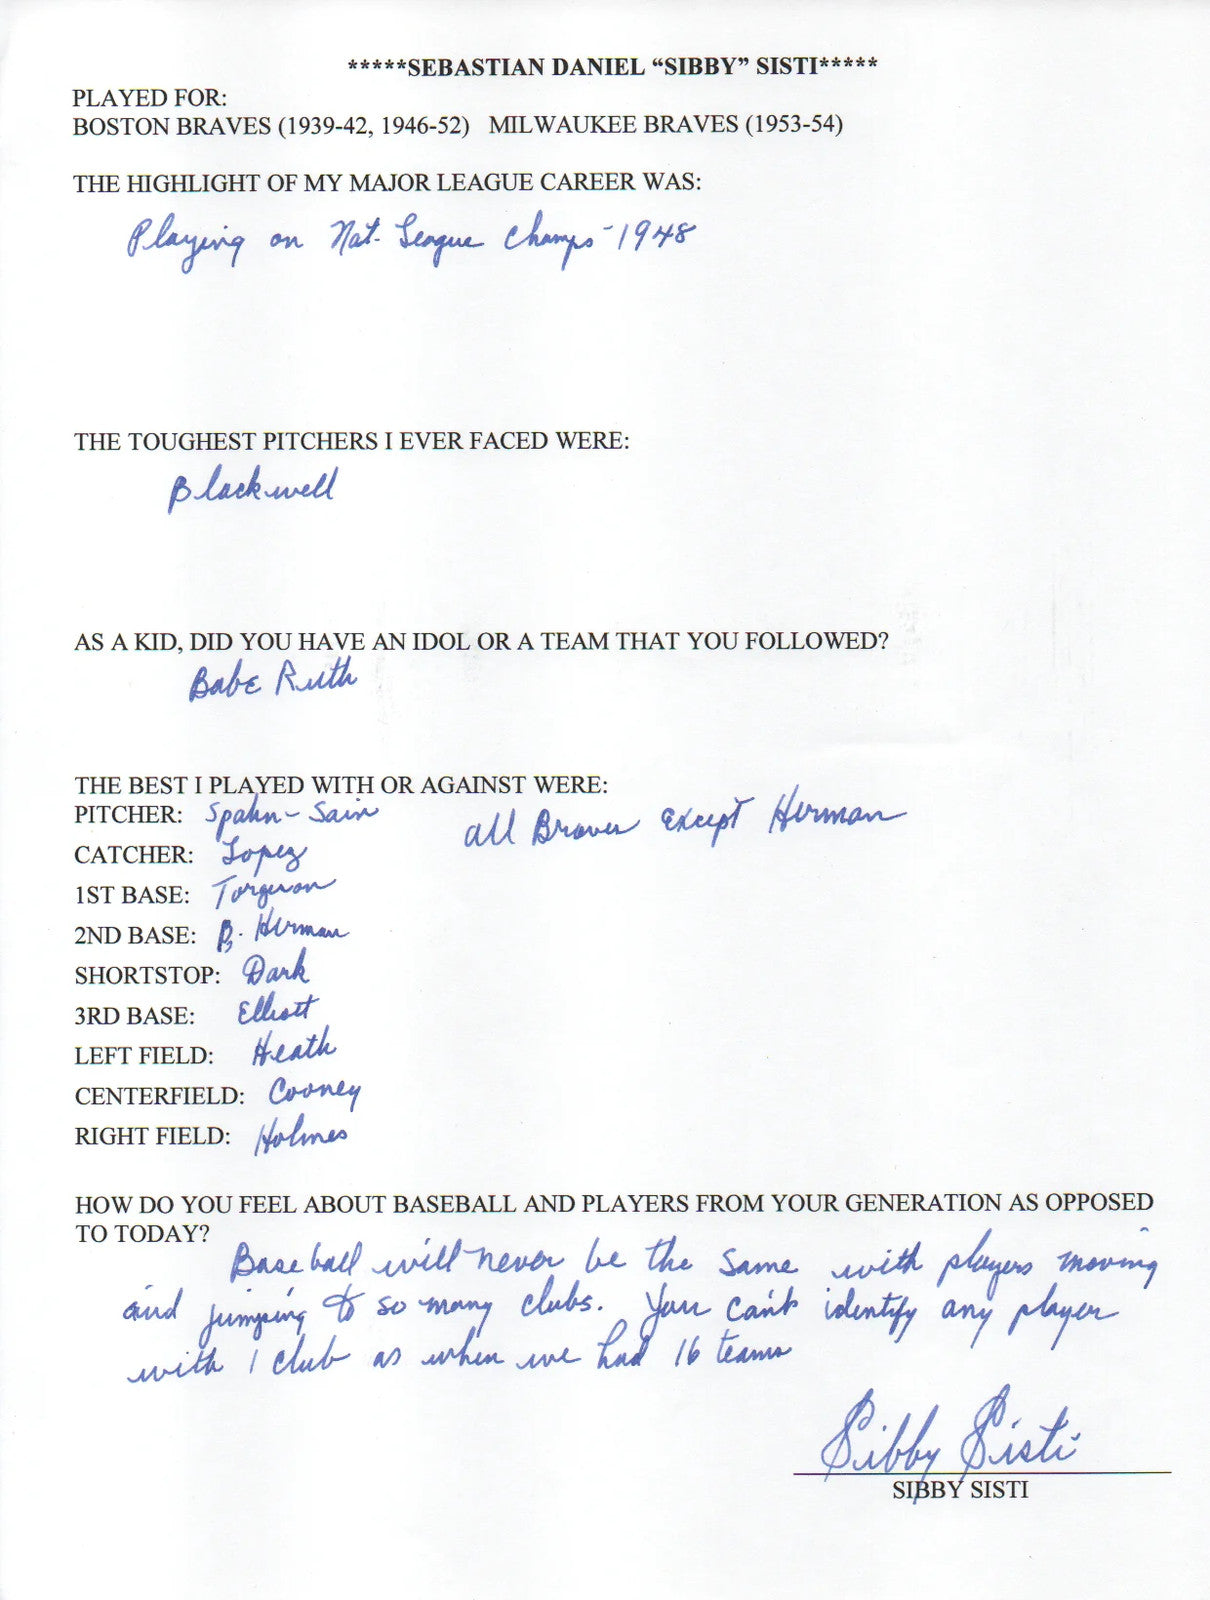 *****SEBASTIAN DANIEL “SIBBY” SISTI*****
PLAYED FOR:
BOSTON BRAVES (1939-42, 1946-52) MILWAUKEE BRAVES (1953-54)
THE HIGHLIGHT OF MY MAJOR LEAGUE CAREER WAS:
Playing on Nat. League Champs - 1948
THE TOUGHEST PITCHERS I EVER FACED WERE:
Blackwell
AS A KID, DID YOU HAVE AN IDOL OR A TEAM THAT YOU FOLLOWED?
Babe Ruth
THE BEST I PLAYED WITH OR AGAINST WERE:
PITCHER: Spahn - Sain
all Braves except Herman
CATCHER: Lopez
1ST BASE: Torgeson
2ND BASE: B. Herman
SHORTSTOP: Dark
3RD BASE: Elliott
LEFT FIELD: Heath
CENTERFIELD: Cooney
RIGHT FIELD: Holmes
HOW DO YOU FEEL ABOUT BASEBALL AND PLAYERS FROM YOUR GENERATION AS OPPOSED
TO TODAY?
Baseball will never be the same with players moving
and jumping to so many clubs. You can't identify any player
with 1 club as when we had 16 teams
Sibby Sisti
SIBBY SISTI